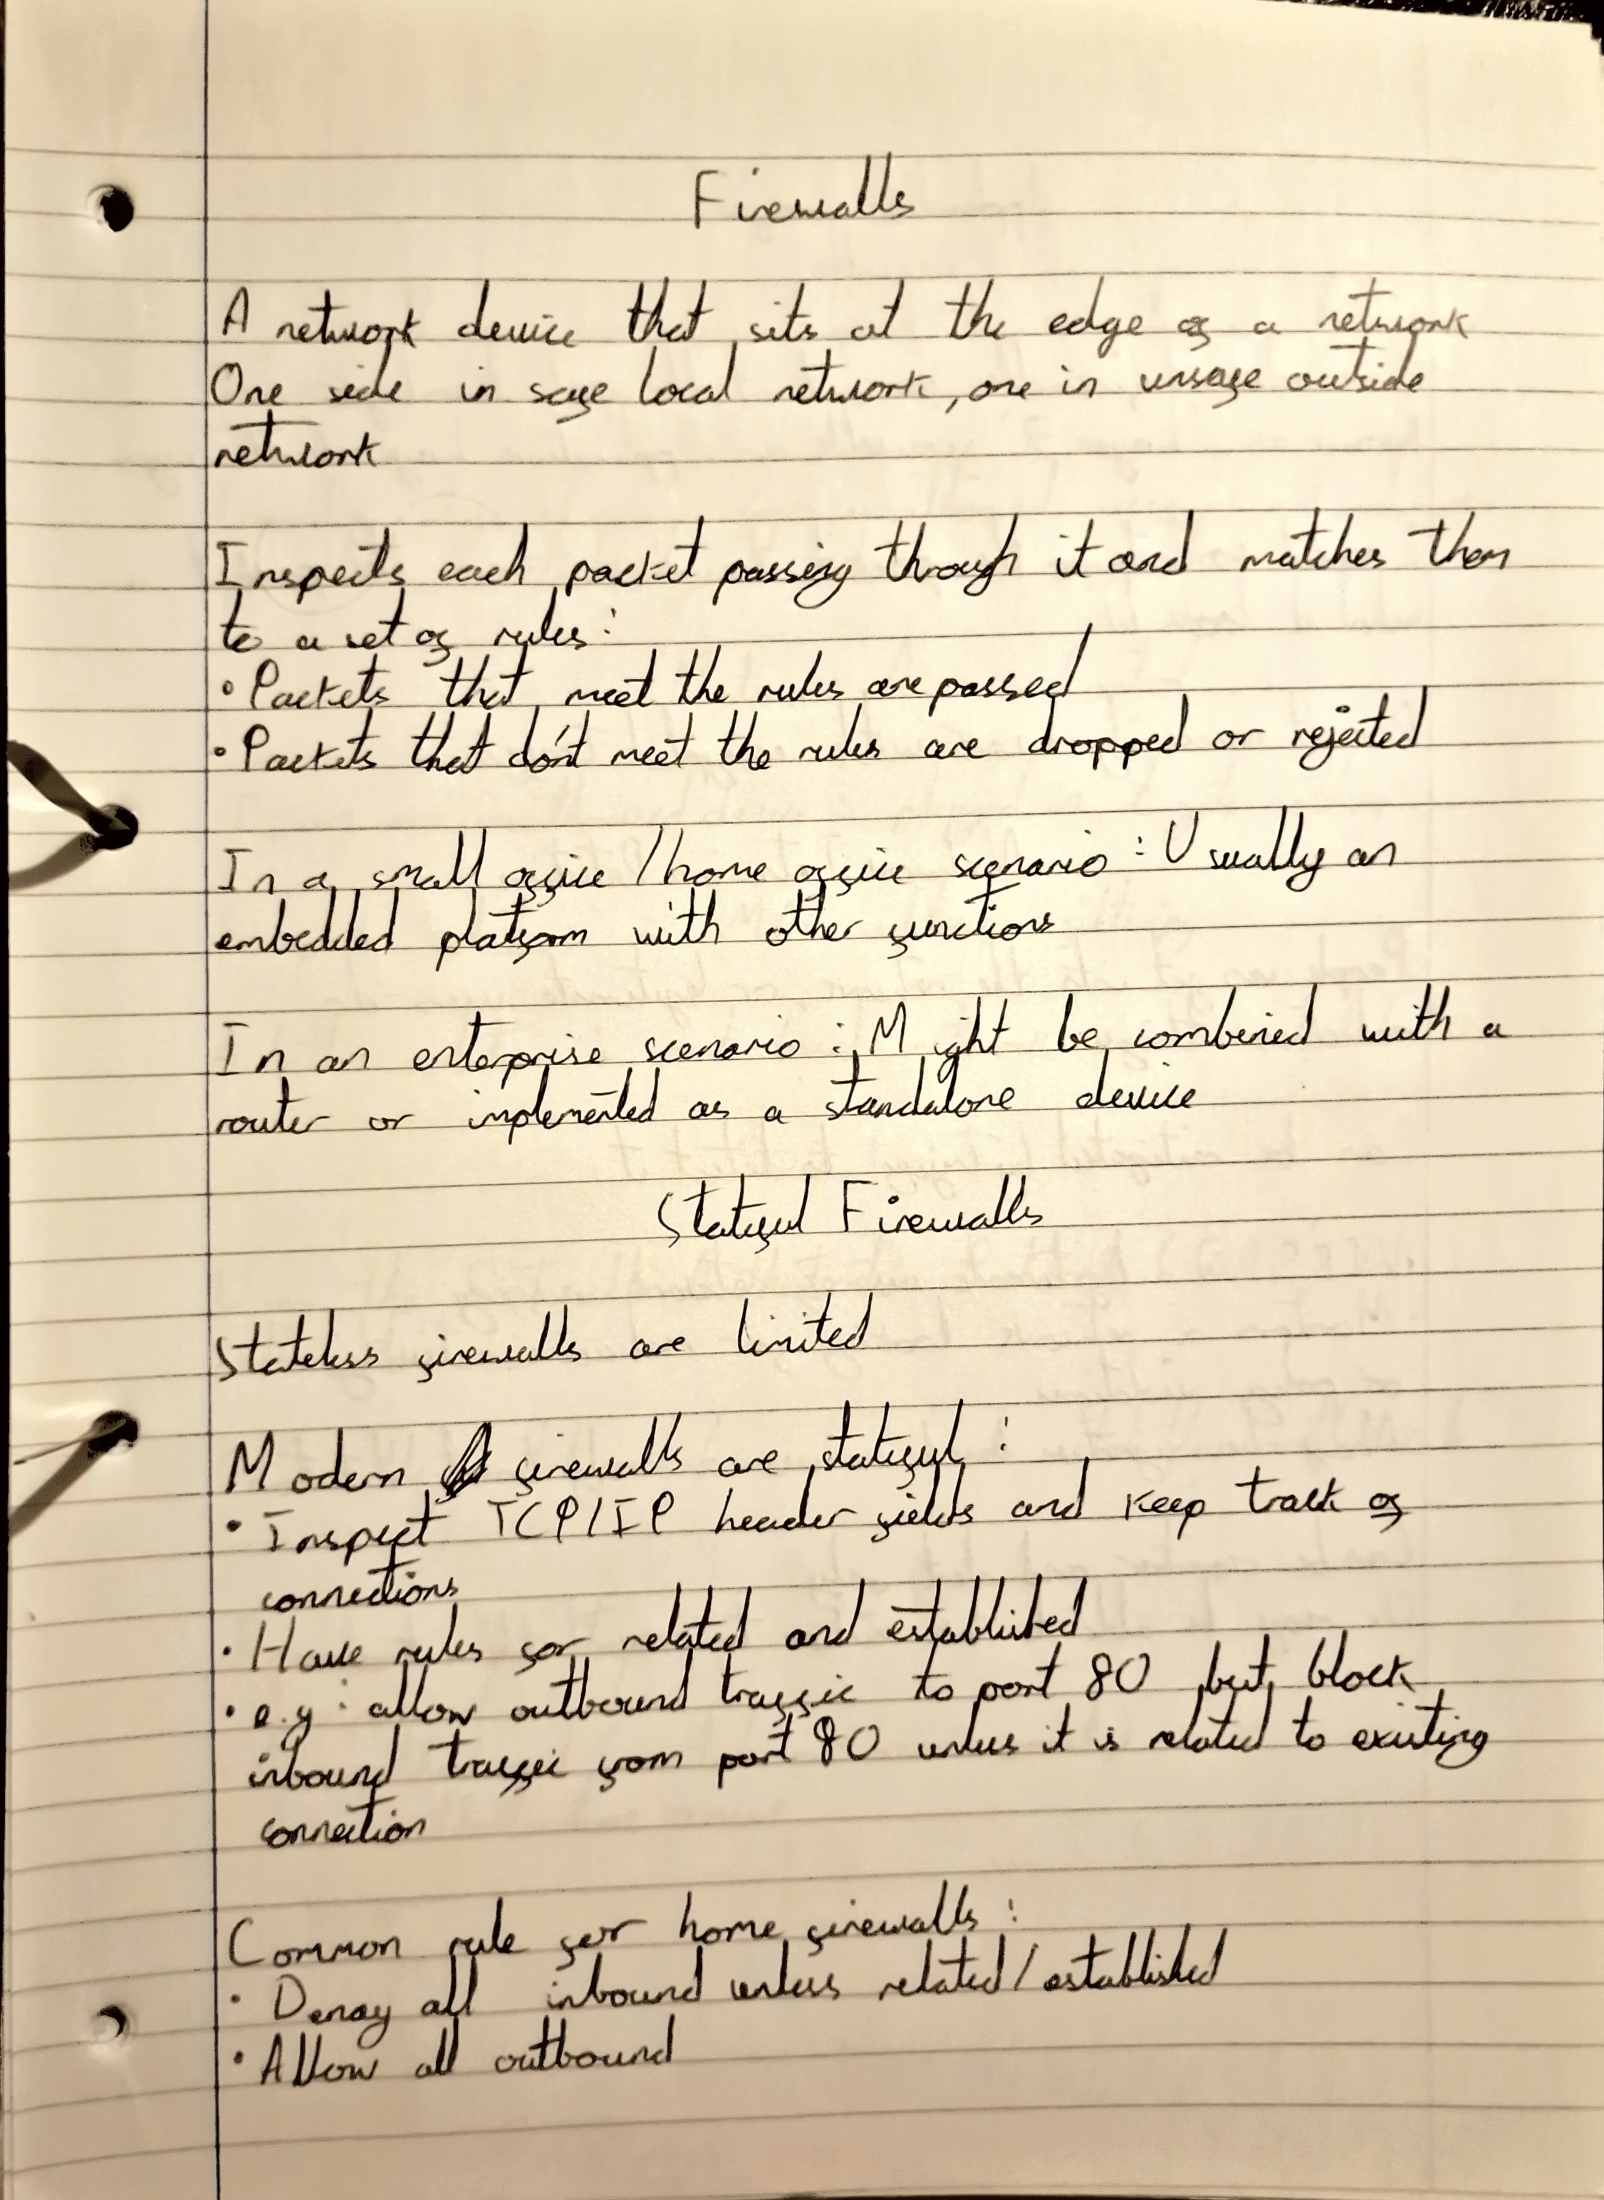 Firewalls
A network device that sits at the edge of a network
One side in safe local network, one in unsafe outside
network
Inspects each packet passing through it and matches them
to a set of rules:
• Packets that meet the rules are passed
• Packets that don't meet the rules are dropped or rejected
In a small office / home office scenario: Usually an
embedded platform with other functions
In an enterprise scenario: Might be combined with a
router or implemented as a standalone device
Stateful Firewalls
Stateless firewalls are limited
Modern firewalls are stateful:
• Inspect TCP/IP header fields and keep track of
connections
• Have rules for related and established
• e.g: allow outbound traffic to port 80 but block
inbound traffic from port 80 unless it is related to existing
connection
Common rule for home firewalls:
• Denay all inbound unless related/established
• Allow all outbound